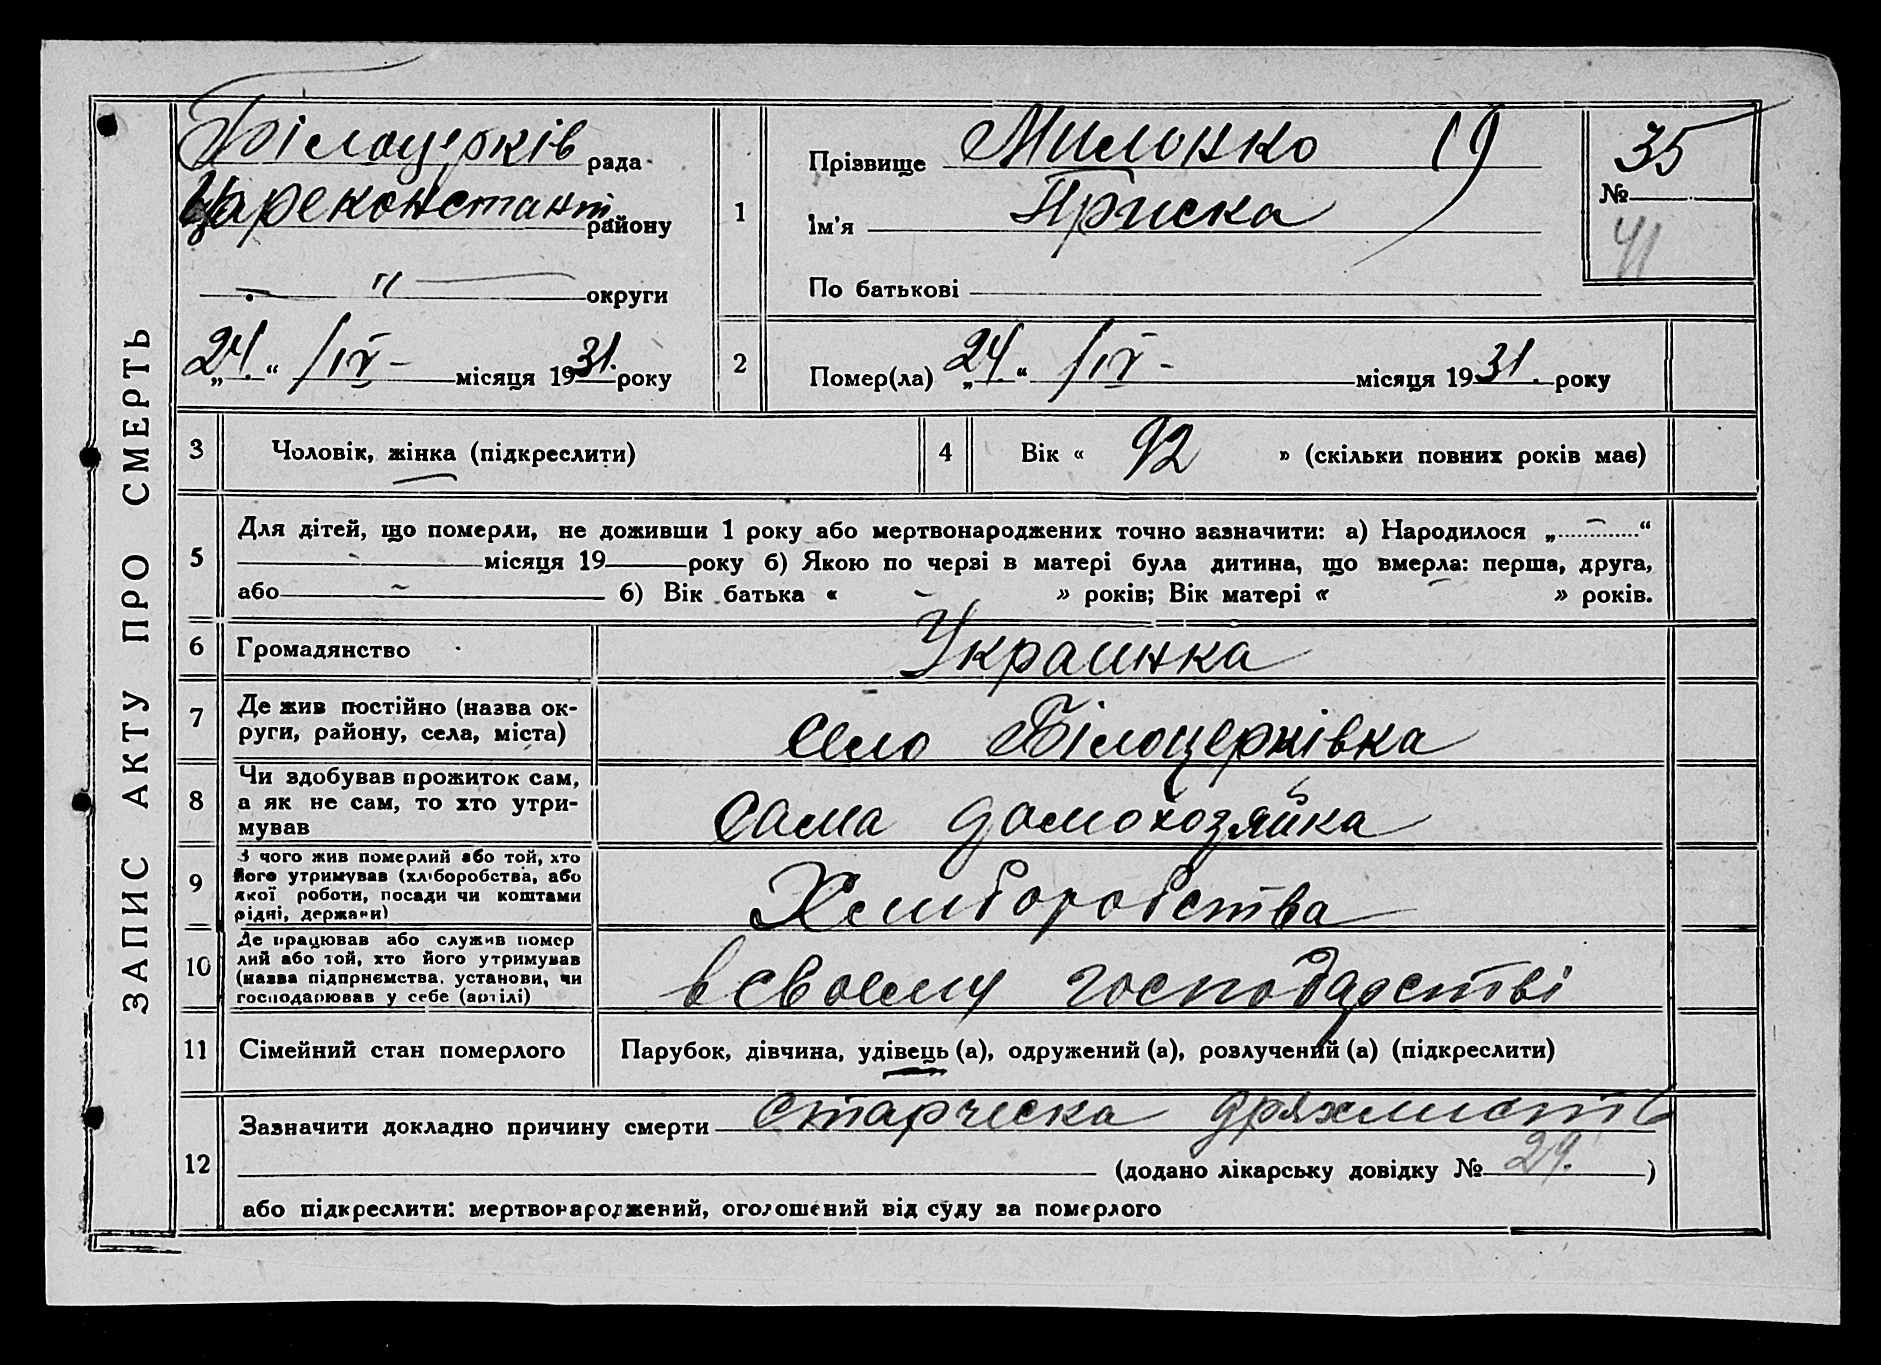 ЗАПИС АКТУ ПРО СМЕРТЬ
Білоцерків рада
Цареконстант району
" округи
„24.“ /IV - місяця 1931. року
1
Прізвище Милонко (9)
Ім'я Приска
По батькові
35
№
41
2
Помер(ла) „24.“ /IV - місяця 1931. року
3 Чоловік, жінка (підкреслити)
4 Вік « 92 » (скільки повних років має)
5 Для дітей, що померли, не доживши 1 року або мертвонароджених точно зазначити: а) Народилося „ “
місяця 19 року б) Якою по черзі в матері була дитина, що вмерла: перша, друга,
або б) Вік батька « » років; Вік матері « » років.
6 Громадянство Украинка
7 Де жив постійно (назва ок-
руги, району, села, міста) село Білоцерківка
8 Чи здобував прожиток сам,
а як не сам, то хто утри-
мував сама домохозяйка
9 З чого жив померлий або той, хто
його утримував (хліборобства, або
якої роботи, посади чи коштами
рідні, держави) Хлиборобства
10 Де працював або служив помер
лий або той, хто його утримував
(назва підприємства, установи, чи
господарював у себе (артілі) в своему господарстві
11 Сімейний стан померлого Парубок, дівчина, удівець (а), одружений (а), розлучений (а) (підкреслити)
12 Зазначити докладно причину смерти старческа дряхлисть
(додано лікарську довідку № 24. )
або підкреслити: мертвонароджений, оголошений від суду за померлого